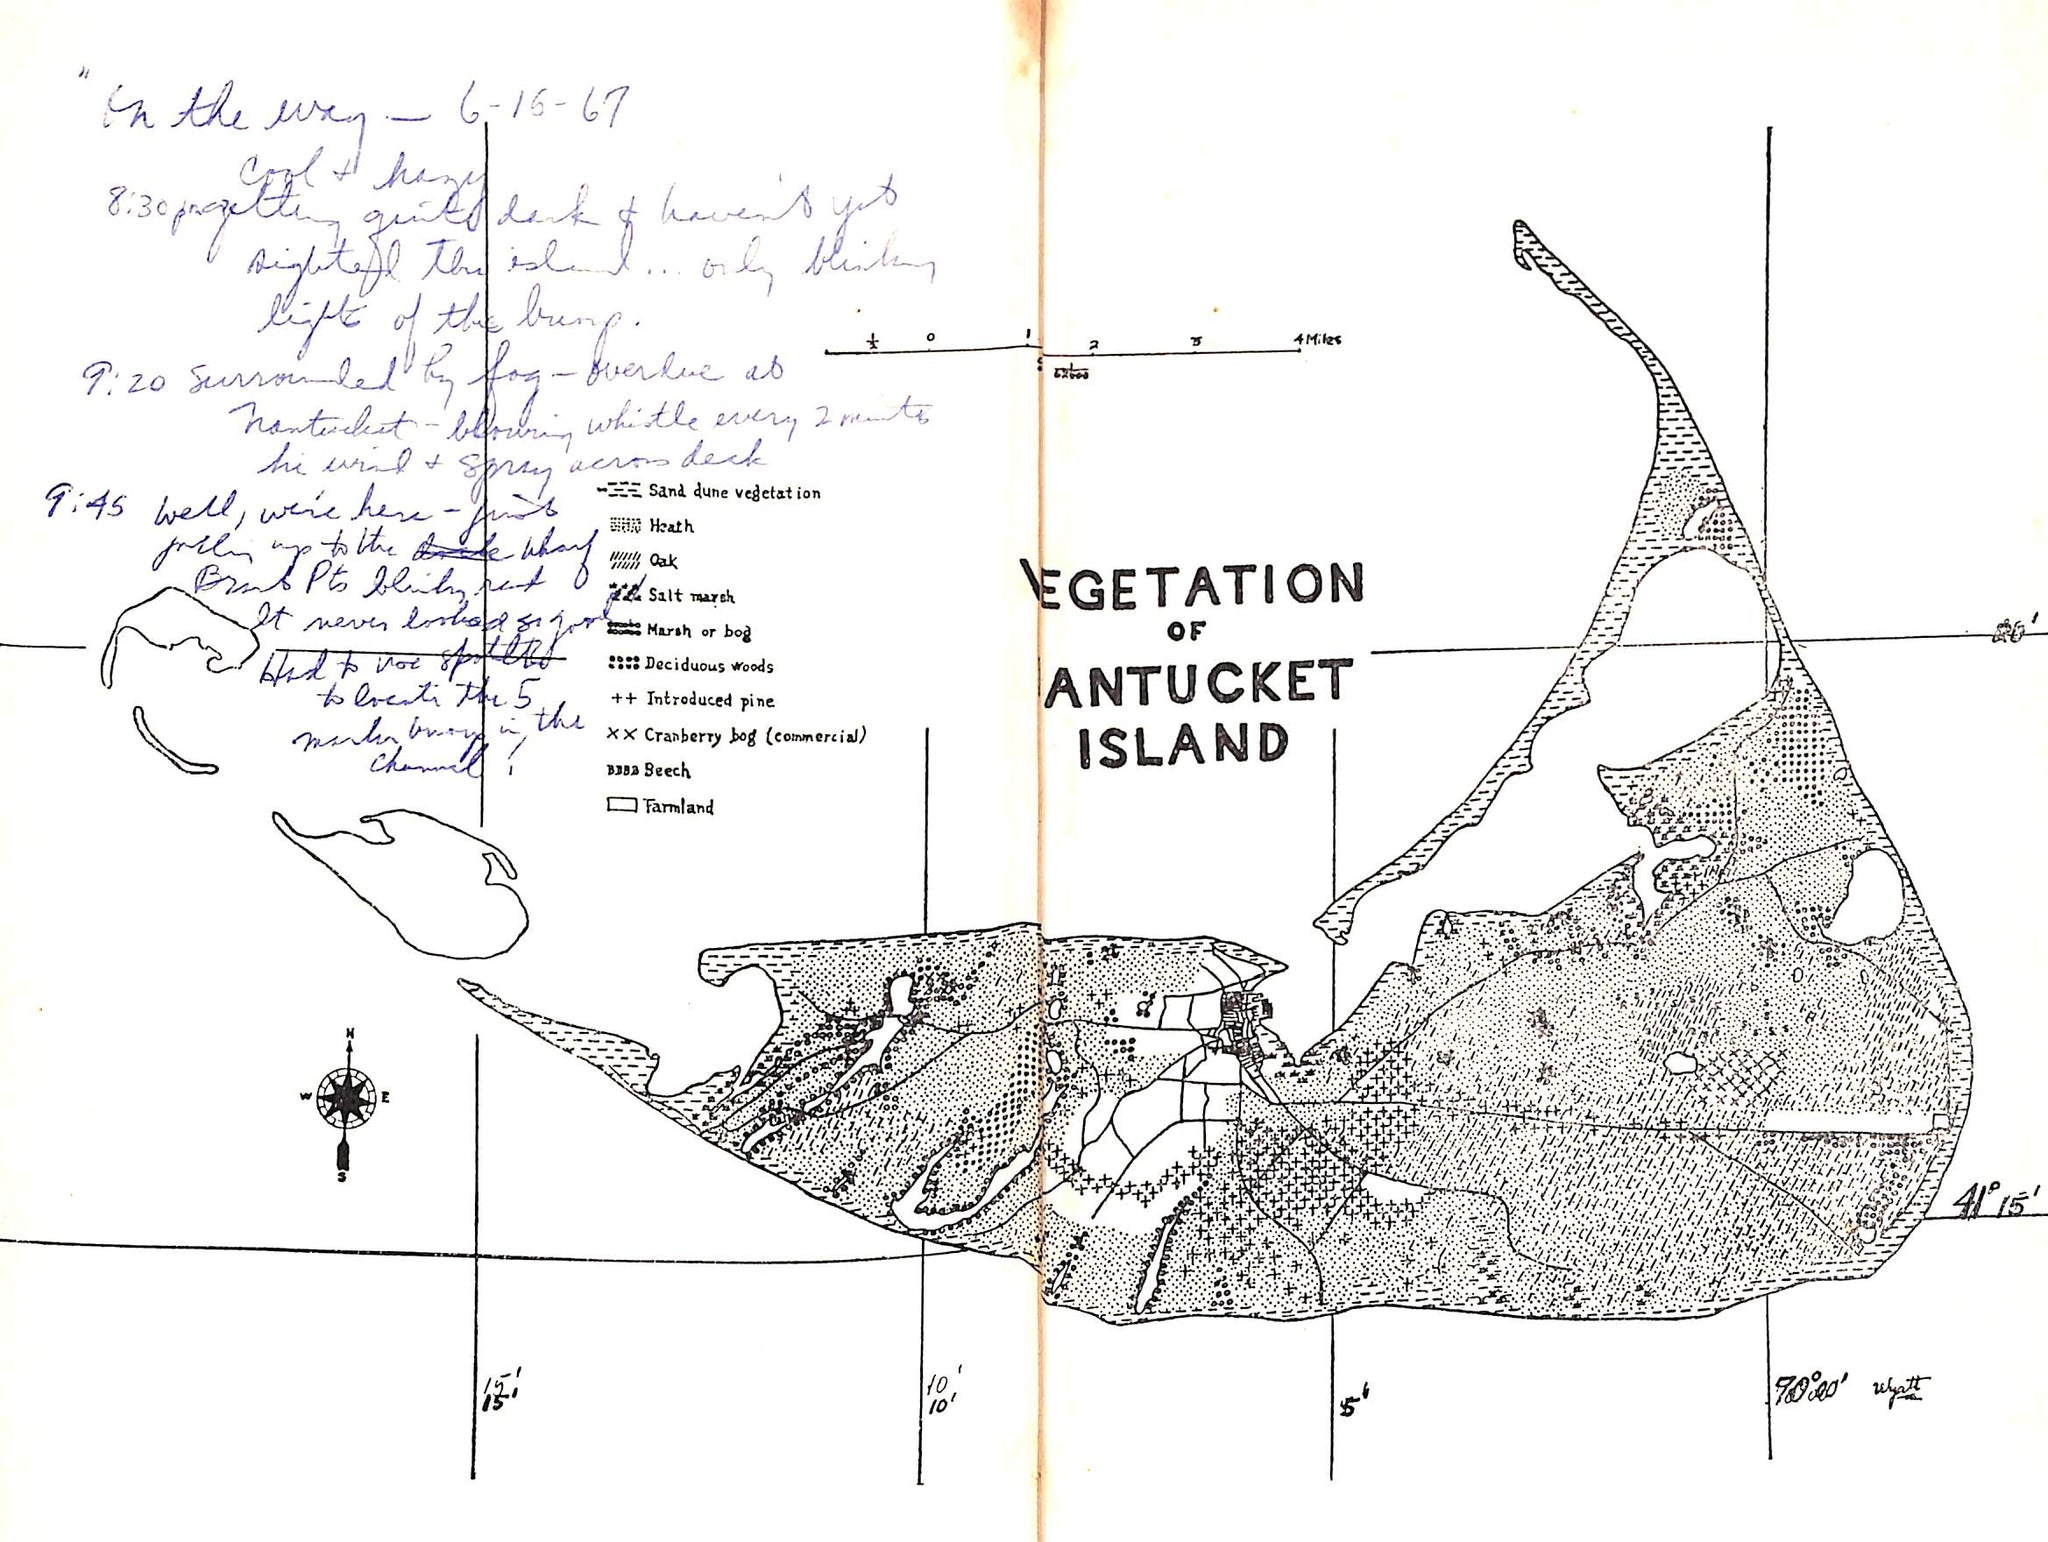 "On the way — 6-16-67
Cool & hazy
8:30 pm getting quite dark & haven't yet
sighted the island... only blinking
lights of the
9:20 Surrounded by fog — overdue at
Nantucket — blowing whistle every 2 minutes
hi wind & spray across deck
9:45 Well, we're here — just
pulling up to the wharf
Brant Pt's blinking red
It never looked so good
Had to use spotlite
to locate the 5
marker buoys in the
channel!
½ 0 1 2 3 4 Miles
Sand dune vegetation
Heath
Oak
Salt marsh
Marsh or bog
Deciduous woods
++ Introduced pine
XX Cranberry bog (commercial)
BBBB Beech
Farmland
VEGETATION
OF
ANTUCKET
ISLAND
20'
N
W E
S
41° 15'
15'
15'
10'
10'
5'
70°00'
Wyatt